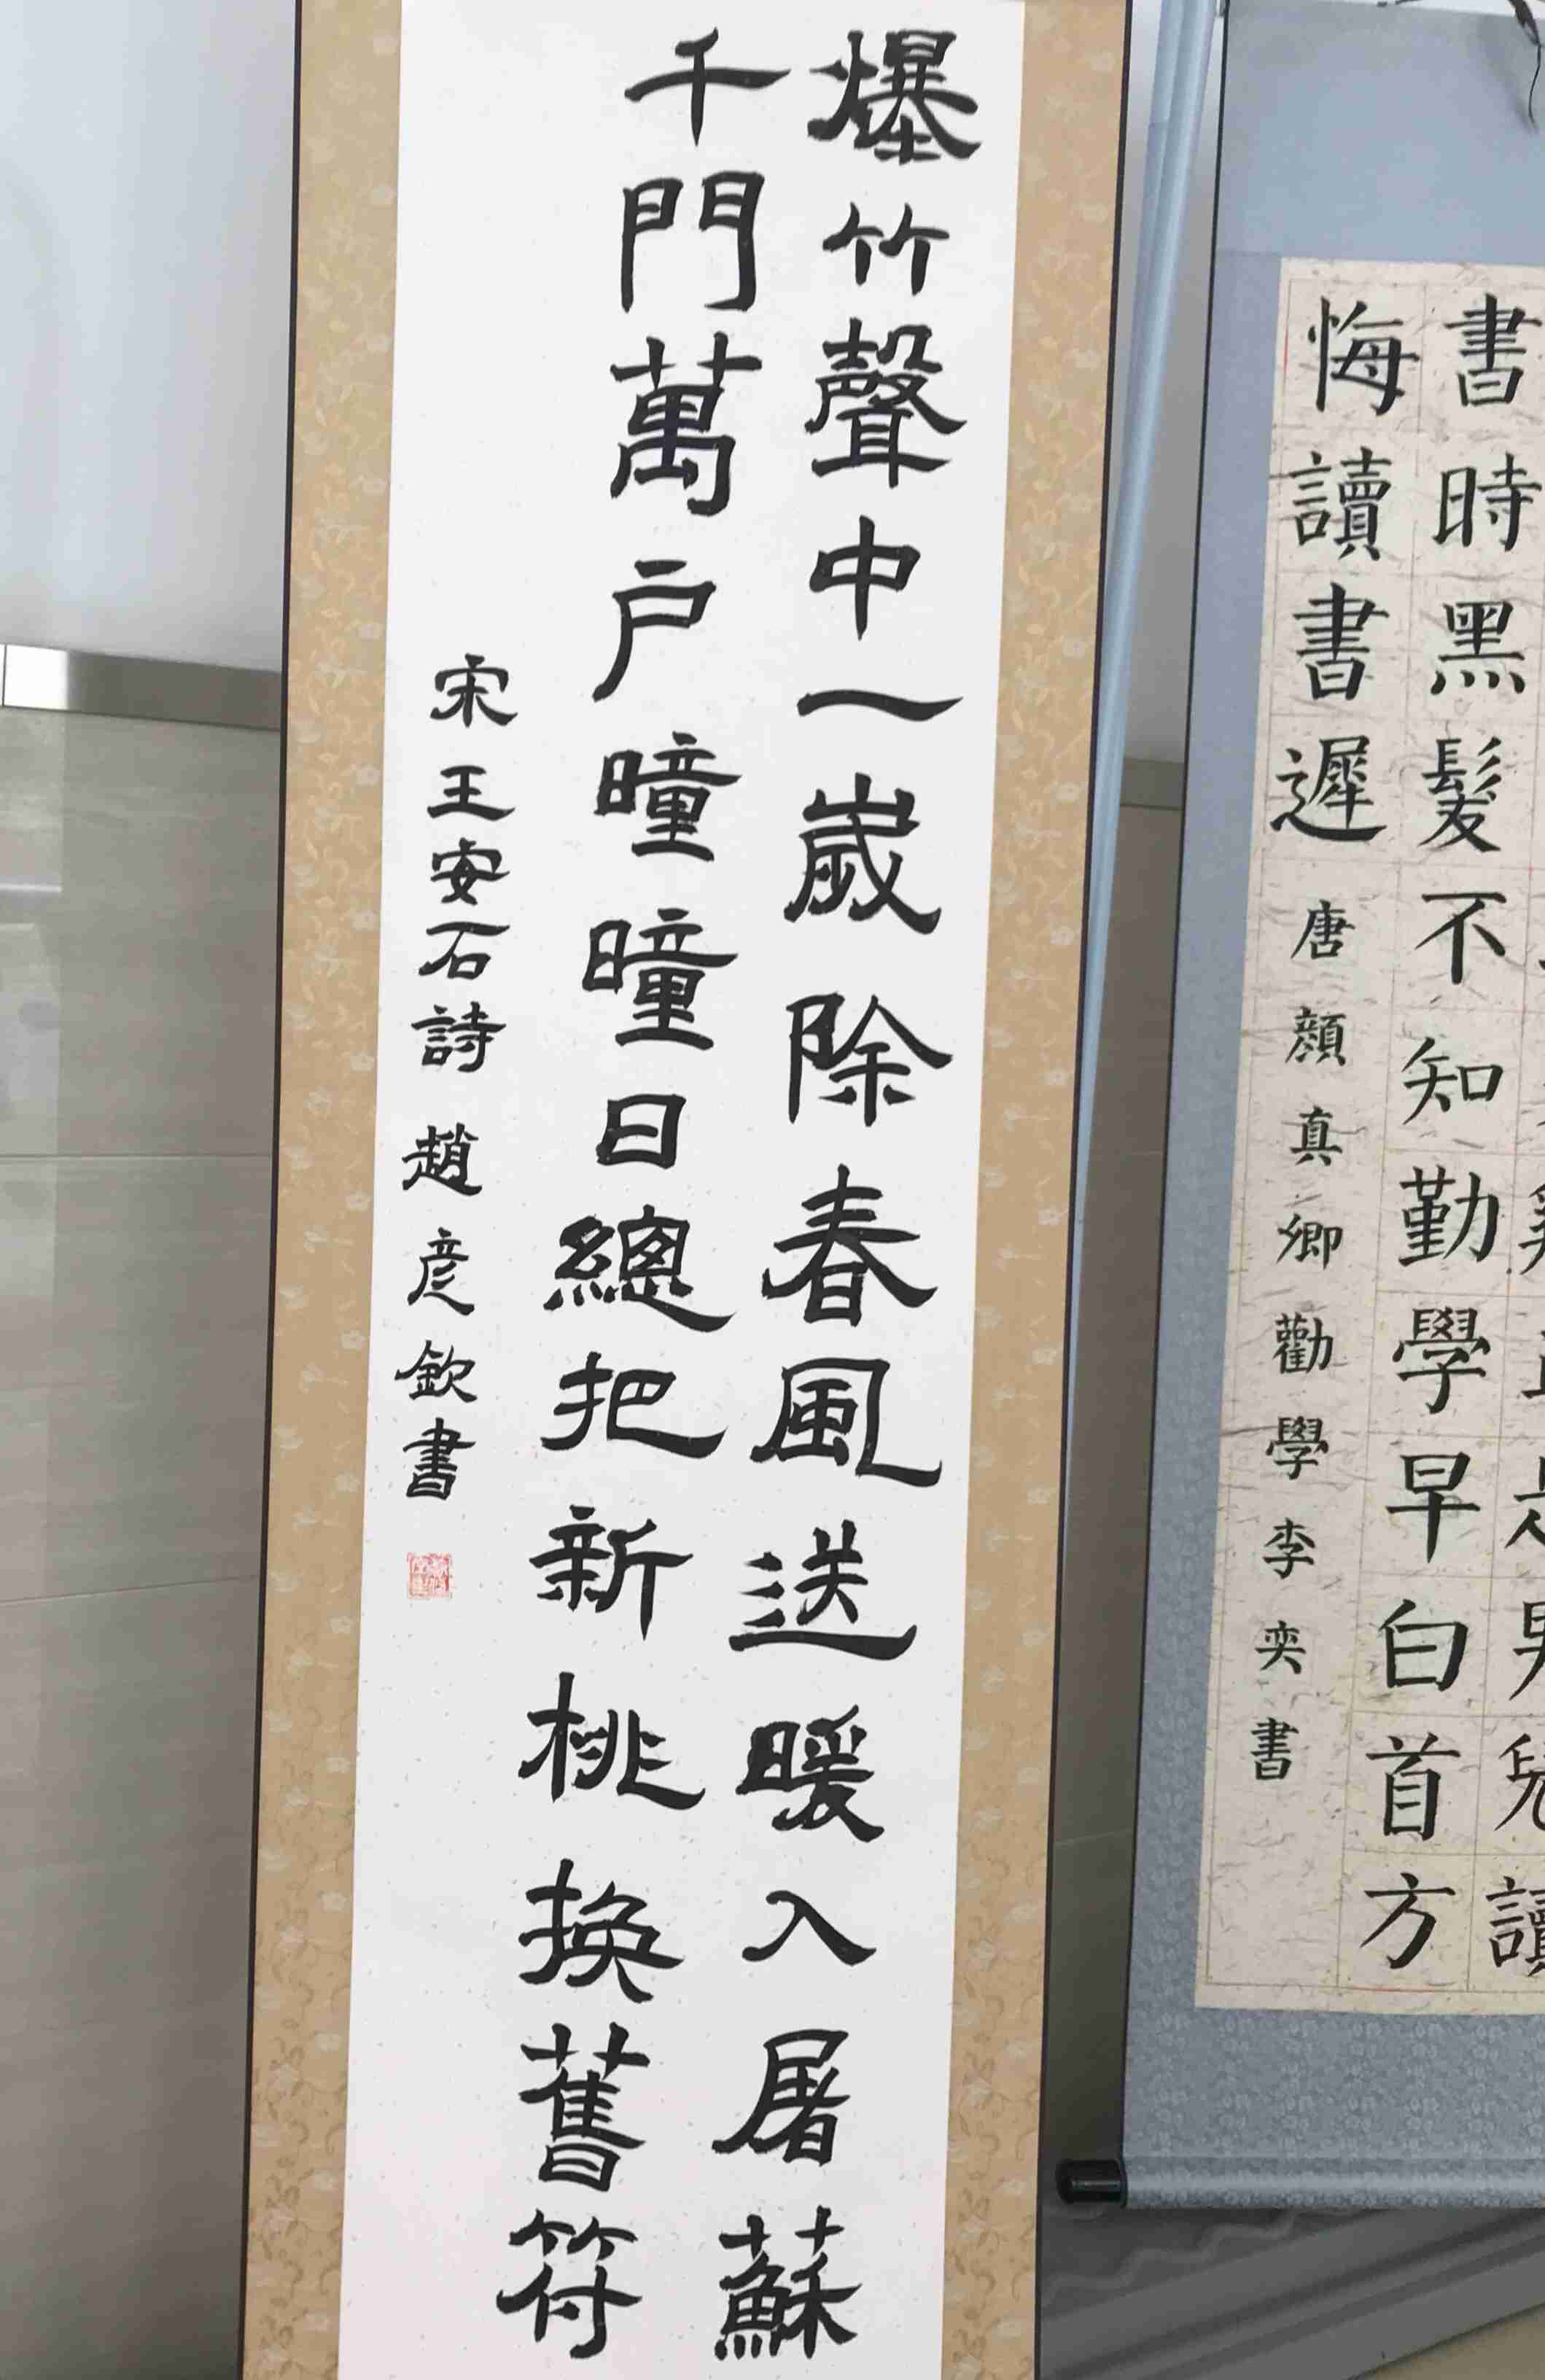 爆竹聲中一歲除春風送暖入屠蘇
千門萬户曈曈日總把新桃換舊符
宋王安石詩 趙彦欽書
書時黑髮不知勤學早白首方
悔讀書遲 唐顏真卿勸學李奕書